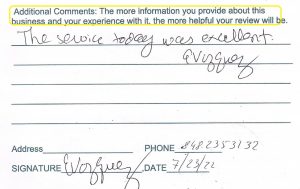 Additional Comments: The more information you provide about this
business and your experience with it, the more helpful your review will be.
The service today was excellent.
EVazquez
Address PHONE 8482353132
SIGNATURE EVazquez DATE 7/23/22